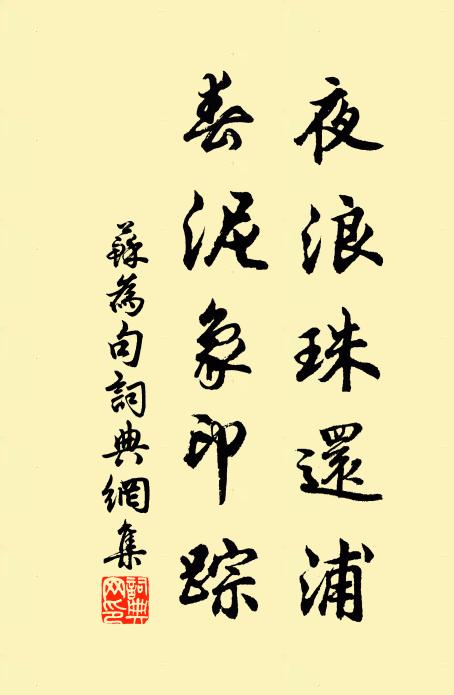 夜浪珠還浦
春泥象印踪
蘇為句詞典網集
詞典网印